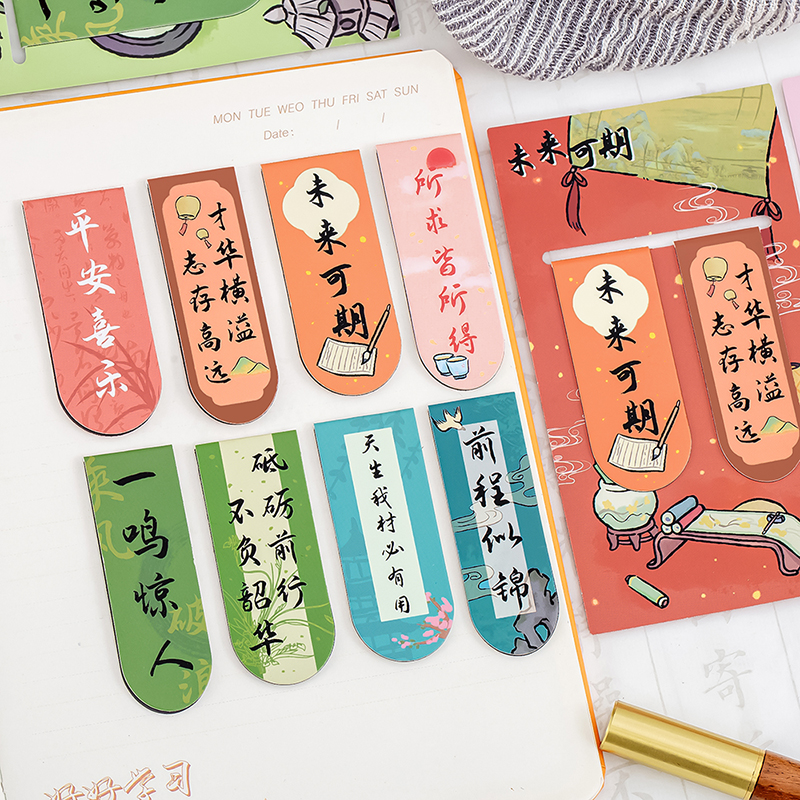 MON TUE WEO THU FRI SAT SUN
Date: / /
平安喜乐
才华横溢
志存高远
未来可期
所求皆所得
一鸣惊人
乘风
破浪
砥砺前行
不负韶华
天生我材必有用
前程似锦
好好学习
未来可期
未来可期
才华横溢
志存高远
寄